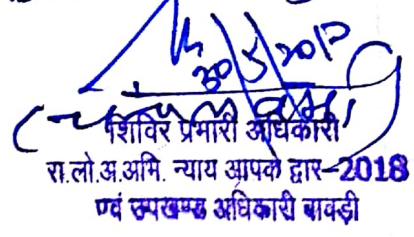 शिविर प्रभारी अधिकारी
रा.लो.अ.अभि. न्याय आपके द्वार-2018
एवं उपखण्ड अधिकारी बावड़ी